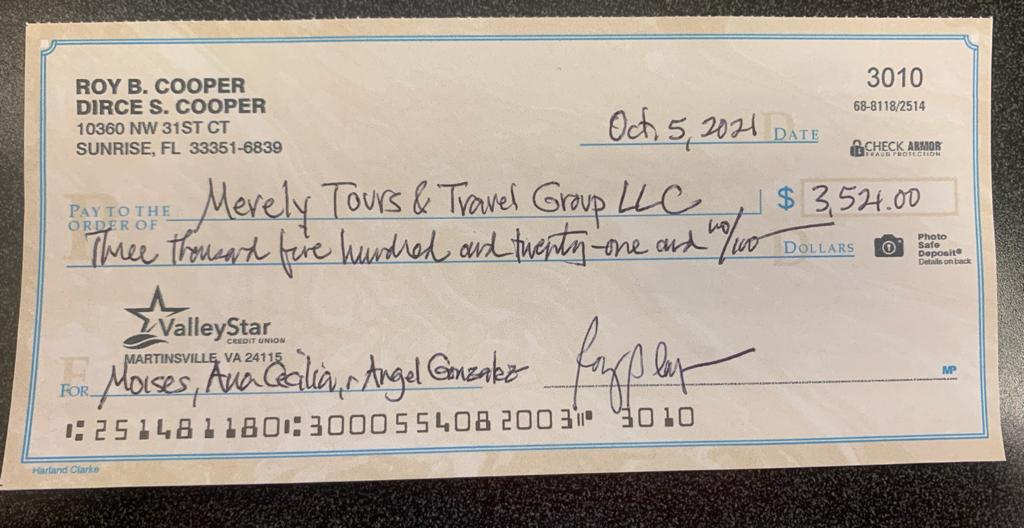 ROY B. COOPER
DIRCE S. COOPER
10360 NW 31ST CT
SUNRISE, FL 33351-6839
3010
68-8118/2514
Oct. 5, 2021 DATE
CHECK ARMOR
FRAUD PROTECTION
PAY TO THE ORDER OF Merely Tours & Travel Group LLC $ 3,521.00
Three thousand five hundred and twenty-one and no/100 DOLLARS
Photo
Safe
Deposit®
Details on back
ValleyStar
CREDIT UNION
MARTINSVILLE, VA 24115
FOR Moises, Ana Cecilia, + Angel Gonzalez
MP
⑆251481180⑆3000554082003⑈ 3010
Harland Clarke